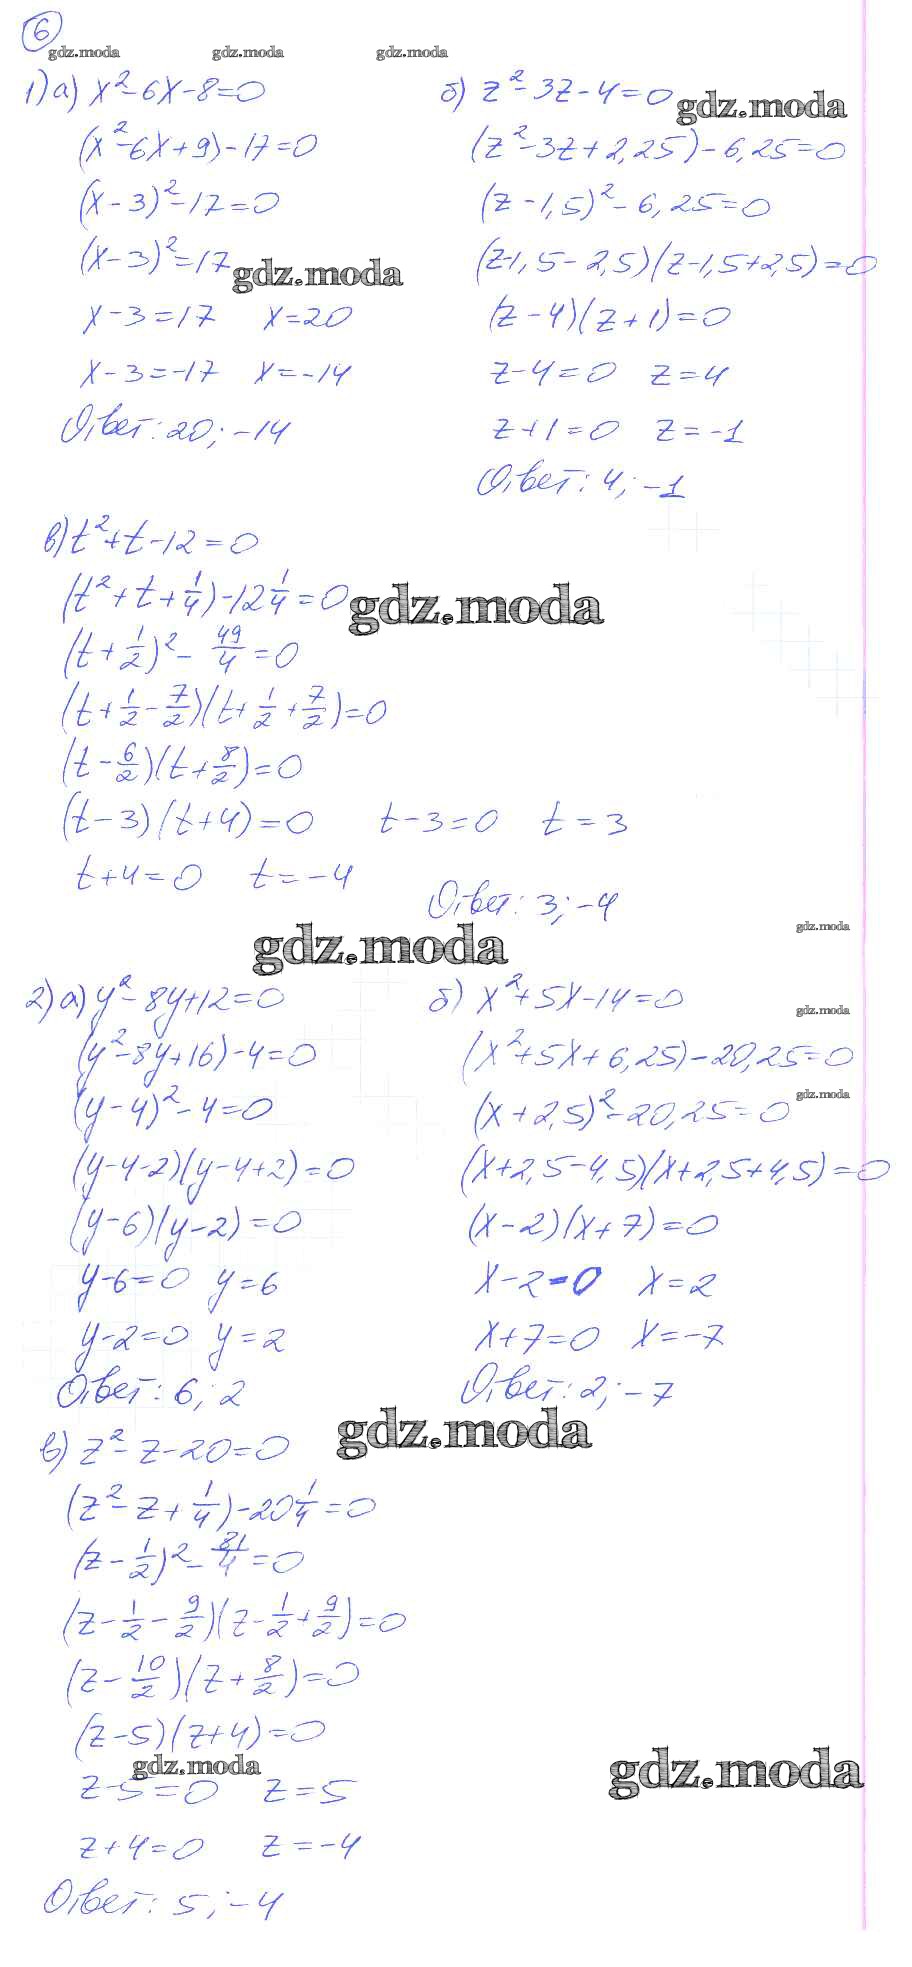 6
gdz.moda gdz.moda gdz.moda
1) а) x² - 6x - 8 = 0
(x² - 6x + 9) - 17 = 0
(x - 3)² - 17 = 0
(x - 3)² = 17
gdz.moda
x - 3 = 17 x = 20
x - 3 = -17 x = -14
Ответ: 20; -14
б) z² - 3z - 4 = 0
gdz.moda
(z² - 3z + 2,25) - 6,25 = 0
(z - 1,5)² - 6,25 = 0
(z - 1,5 - 2,5)(z - 1,5 + 2,5) = 0
(z - 4)(z + 1) = 0
z - 4 = 0 z = 4
z + 1 = 0 z = -1
Ответ: 4; -1
в) t² + t - 12 = 0
(t² + t + 1/4) - 12 1/4 = 0
gdz.moda
(t + 1/2)² - 49/4 = 0
(t + 1/2 - 7/2)(t + 1/2 + 7/2) = 0
(t - 6/2)(t + 8/2) = 0
(t - 3)(t + 4) = 0 t - 3 = 0 t = 3
t + 4 = 0 t = -4
Ответ: 3; -4
gdz.moda
gdz.moda
2) а) y² - 8y + 12 = 0
(y² - 8y + 16) - 4 = 0
(y - 4)² - 4 = 0
(y - 4 - 2)(y - 4 + 2) = 0
(y - 6)(y - 2) = 0
y - 6 = 0 y = 6
y - 2 = 0 y = 2
Ответ: 6; 2
б) x² + 5x - 14 = 0
gdz.moda
(x² + 5x + 6,25) - 20,25 = 0
gdz.moda
(x + 2,5)² - 20,25 = 0
(x + 2,5 - 4,5)(x + 2,5 + 4,5) = 0
(x - 2)(x + 7) = 0
x - 2 = 0 x = 2
x + 7 = 0 x = -7
Ответ: 2; -7
gdz.moda
в) z² - z - 20 = 0
(z² - z + 1/4) - 20 1/4 = 0
(z - 1/2)² - 81/4 = 0
(z - 1/2 - 9/2)(z - 1/2 + 9/2) = 0
(z - 10/2)(z + 8/2) = 0
(z - 5)(z + 4) = 0
gdz.moda
gdz.moda
z - 5 = 0 z = 5
z + 4 = 0 z = -4
Ответ: 5; -4